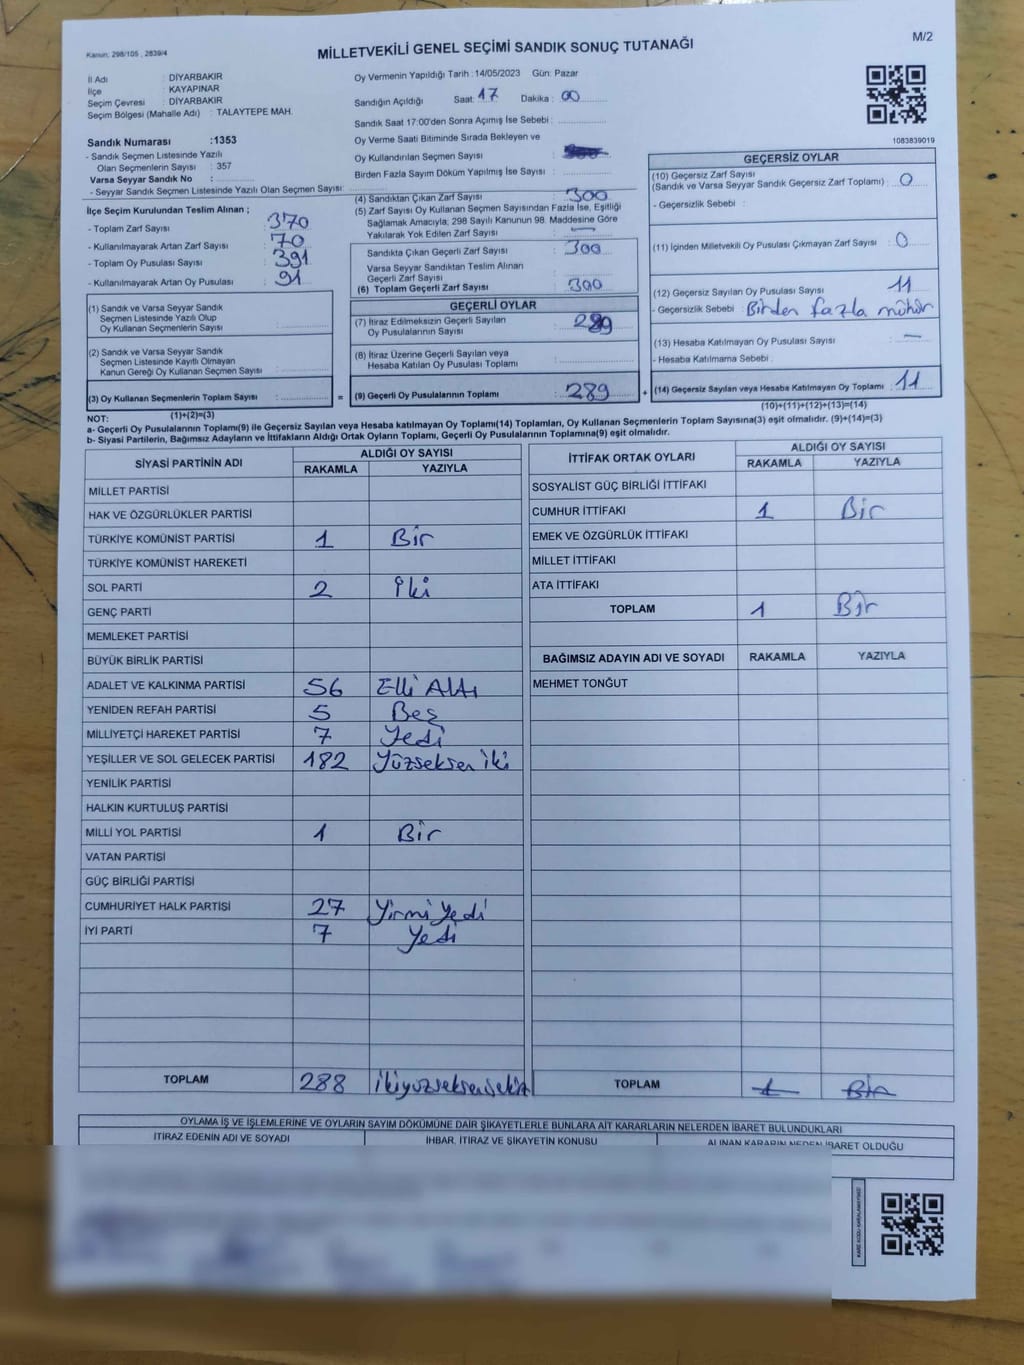 Kanun: 298/105 , 2839/4
MİLLETVEKİLİ GENEL SEÇİMİ SANDIK SONUÇ TUTANAĞI
M/2
İl Adı : DİYARBAKIR
İlçe : KAYAPINAR
Seçim Çevresi : DİYARBAKIR
Seçim Bölgesi (Mahalle Adı) : TALAYTEPE MAH.
Sandık Numarası :1353
- Sandık Seçmen Listesinde Yazılı
Olan Seçmenlerin Sayısı : 357
Varsa Seyyar Sandık No :
- Seyyar Sandık Seçmen Listesinde Yazılı Olan Seçmen Sayısı:
İlçe Seçim Kurulundan Teslim Alınan ;
- Toplam Zarf Sayısı : 370
- Kullanılmayarak Artan Zarf Sayısı : 70
- Toplam Oy Pusulası Sayısı : 391
- Kullanılmayarak Artan Oy Pusulası : 91
(1) Sandık ve Varsa Seyyar Sandık
Seçmen Listesinde Yazılı Olup
Oy Kullanan Seçmenlerin Sayısı :
(2) Sandık ve Varsa Seyyar Sandık
Seçmen Listesinde Kayıtlı Olmayan
Kanun Gereği Oy Kullanan Seçmen Sayısı :
(3) Oy Kullanan Seçmenlerin Toplam Sayısı :
(1)+(2)=(3)
Oy Vermenin Yapıldığı Tarih : 14/05/2023 Gün: Pazar
Sandığın Açıldığı Saat: 17 Dakika : 00
Sandık Saat 17:00'den Sonra Açılmış İse Sebebi :
Oy Verme Saati Bitiminde Sırada Bekleyen ve
Oy Kullandırılan Seçmen Sayısı :
Birden Fazla Sayım Döküm Yapılmış İse Sayısı :
(4) Sandıktan Çıkan Zarf Sayısı : 300
(5) Zarf Sayısı Oy Kullanan Seçmen Sayısından Fazla İse, Eşitliği
Sağlamak Amacıyla; 298 Sayılı Kanunun 98. Maddesine Göre
Yakılarak Yok Edilen Zarf Sayısı : —
Sandıkta Çıkan Geçerli Zarf Sayısı : 300
Varsa Seyyar Sandıktan Teslim Alınan
Geçerli Zarf Sayısı :
(6) Toplam Geçerli Zarf Sayısı : 300
GEÇERLİ OYLAR
(7) İtiraz Edilmeksizin Geçerli Sayılan
Oy Pusulalarının Sayısı : 289
(8) İtiraz Üzerine Geçerli Sayılan veya
Hesaba Katılan Oy Pusulası Toplamı :
= (9) Geçerli Oy Pusulalarının Toplamı : 289
1083839019
GEÇERSİZ OYLAR
(10) Geçersiz Zarf Sayısı
(Sandık ve Varsa Seyyar Sandık Geçersiz Zarf Toplamı) : 0
- Geçersizlik Sebebi :
(11) İçinden Milletvekili Oy Pusulası Çıkmayan Zarf Sayısı : 0
(12) Geçersiz Sayılan Oy Pusulası Sayısı : 11
- Geçersizlik Sebebi : Birden fazla mühür
(13) Hesaba Katılmayan Oy Pusulası Sayısı : —
- Hesaba Katılmama Sebebi :
+ (14) Geçersiz Sayılan veya Hesaba Katılmayan Oy Toplamı : 11
(10)+(11)+(12)+(13)=(14)
NOT:
a- Geçerli Oy Pusulalarının Toplamı(9) ile Geçersiz Sayılan veya Hesaba katılmayan Oy Toplamı(14) Toplamları, Oy Kullanan Seçmenlerin Toplam Sayısına(3) eşit olmalıdır. (9)+(14)=(3)
b- Siyasi Partilerin, Bağımsız Adayların ve İttifakların Aldığı Ortak Oyların Toplamı, Geçerli Oy Pusulalarının Toplamına(9) eşit olmalıdır.
SİYASİ PARTİNİN ADI ALDIĞI OY SAYISI
RAKAMLA YAZIYLA
MİLLET PARTİSİ
HAK VE ÖZGÜRLÜKLER PARTİSİ
TÜRKİYE KOMÜNİST PARTİSİ 1 Bir
TÜRKİYE KOMÜNİST HAREKETİ
SOL PARTİ 2 İki
GENÇ PARTİ
MEMLEKET PARTİSİ
BÜYÜK BİRLİK PARTİSİ
ADALET VE KALKINMA PARTİSİ 56 Elli Altı
YENİDEN REFAH PARTİSİ 5 Beş
MİLLİYETÇİ HAREKET PARTİSİ 7 Yedi
YEŞİLLER VE SOL GELECEK PARTİSİ 182 Yüzseksen iki
YENİLİK PARTİSİ
HALKIN KURTULUŞ PARTİSİ
MİLLİ YOL PARTİSİ 1 Bir
VATAN PARTİSİ
GÜÇ BİRLİĞİ PARTİSİ
CUMHURİYET HALK PARTİSİ 27 Yirmi Yedi
İYİ PARTİ 7 Yedi
TOPLAM 288 ikiyüzseksensekiz
İTTİFAK ORTAK OYLARI ALDIĞI OY SAYISI
RAKAMLA YAZIYLA
SOSYALİST GÜÇ BİRLİĞİ İTTİFAKI
CUMHUR İTTİFAKI 1 Bir
EMEK VE ÖZGÜRLÜK İTTİFAKI
MİLLET İTTİFAKI
ATA İTTİFAKI
TOPLAM 1 Bir
BAĞIMSIZ ADAYIN ADI VE SOYADI RAKAMLA YAZIYLA
MEHMET TONĞUT
TOPLAM 1 Bir
OYLAMA İŞ VE İŞLEMLERİNE VE OYLARIN SAYIM DÖKÜMÜNE DAİR ŞİKAYETLERLE BUNLARA AİT KARARLARIN NELERDEN İBARET BULUNDUKLARI
İTİRAZ EDENİN ADI VE SOYADI İHBAR, İTİRAZ VE ŞİKAYETİN KONUSU ALINAN KARARIN NEDEN İBARET OLDUĞU